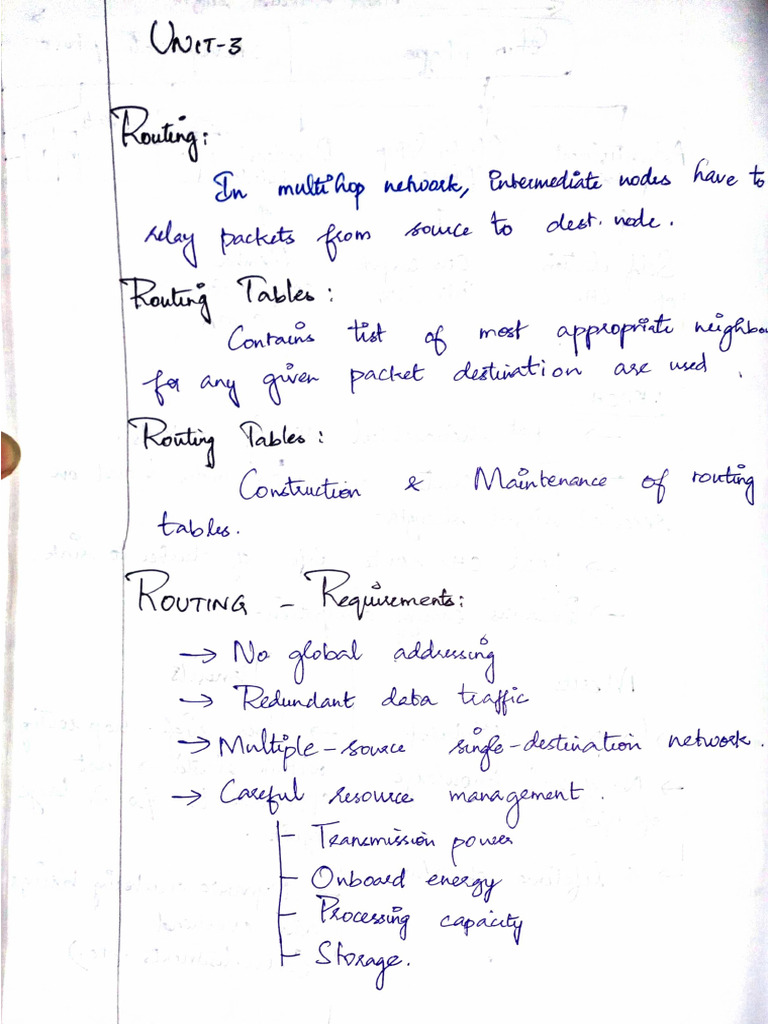 UNIT-3
Routing:
In multihop network, intermediate nodes have to
relay packets from source to dest. node.
Routing Tables:
Contains list of most appropriate neighbou
for any given packet destination are used.
Routing Tables:
Construction & Maintenance of routing
tables.
ROUTING - Requirements:
→ No global addressing
→ Redundant data traffic
→ Multiple-source single-destination network.
→ Careful resource management.
- Transmission power
- Onboard energy
- Processing capacity
- Storage.